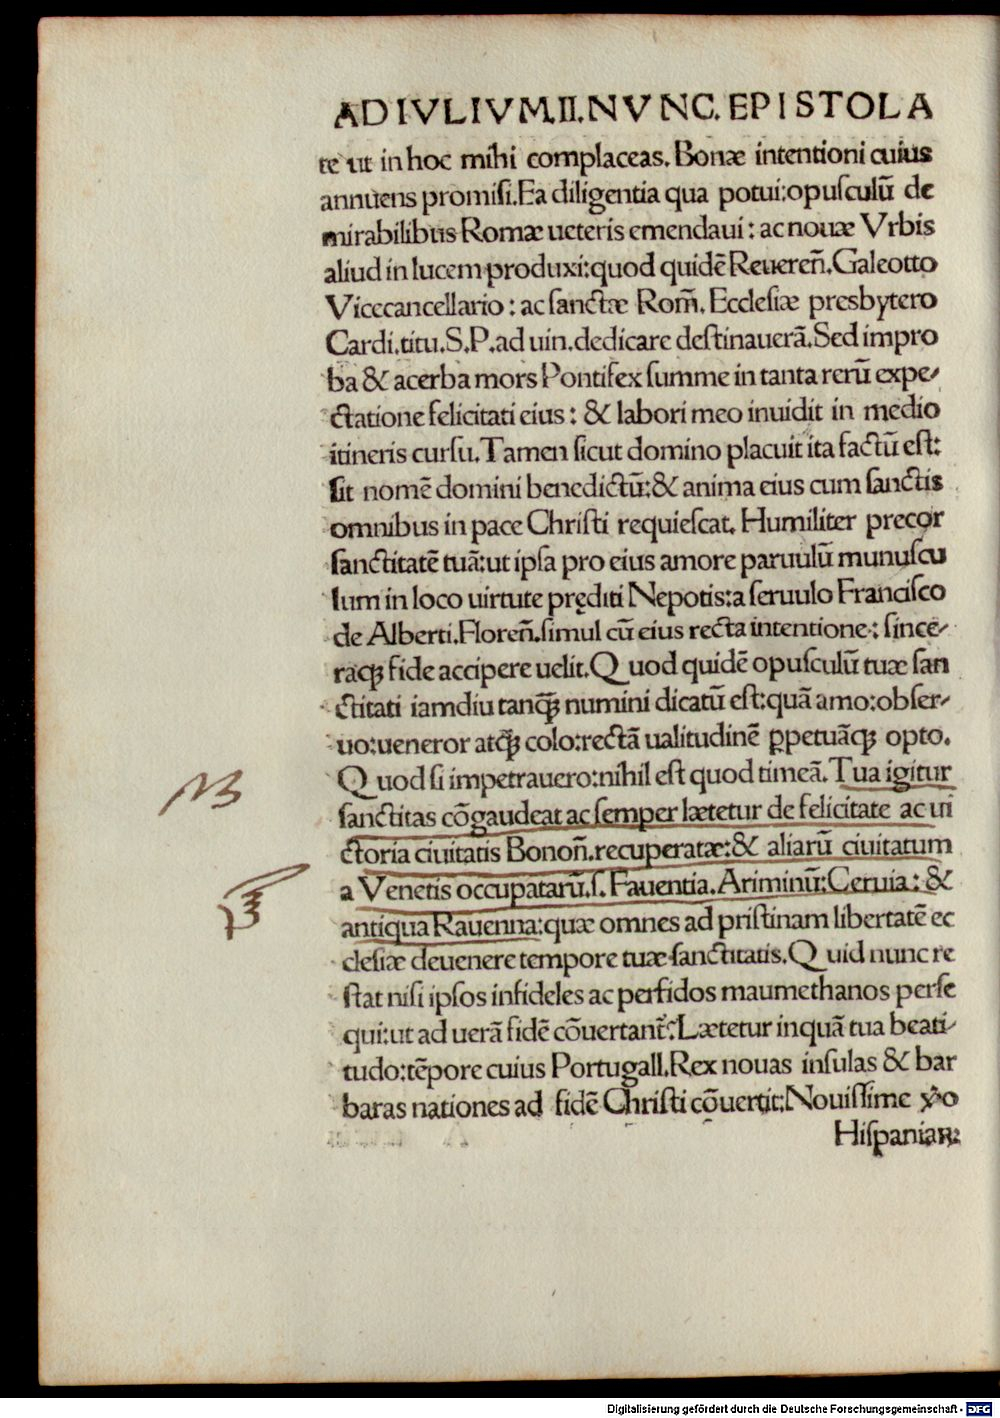 AD IVLIVM.II.NVNC.EPISTOLA
te ut in hoc mihi complaceas. Bonæ intentioni cuius
annuens promiſi. Ea diligentia qua potui: opuſculū de
mirabilibus Romæ ueteris emendaui: ac nouæ Vrbis
aliud in lucem produxi: quod quidē Reueren̄. Galeotto
Vicecancellario: ac ſanctæ Rom̄. Eccleſiæ presbytero
Cardi. titu. S. P. ad uin. dedicare deſtinauerā. Sed impro
ba & acerba mors Pontifex ſumme in tanta rerū expe⸗
ctatione felicitati eius: & labori meo inuidit in medio
itineris curſu. Tamen ſicut domino placuit ita factū eſt:
ſit nomē domini benedictū: & anima eius cum ſanctis
omnibus in pace Chriſti requieſcat. Humiliter precor
ſanctitatē tuā: ut ipſa pro eius amore paruulū munuſcu
lum in loco uirtute pręditi Nepotis: a ſeruulo Franciſco
de Alberti. Floren̄. ſimul cū eius recta intentione: ſince⸗
raqꝫ fide accipere uelit. Quod quidē opuſculū tuæ ſan
ctitati iamdiu tanq̄ꝫ numini dicatū eſt: quā amo: obſer⸗
uo: ueneror atq̄ꝫ colo: rectā ualitudinē ꝑpetuāqꝫ opto.
Quod ſi impetrauero: nihil eſt quod timeā. Tua igitur
ſanctitas cōgaudeat ac ſemper lætetur de felicitate ac ui
ctoria ciuitatis Bonon̄. recuperatæ: & aliarū ciuitatum
a Venetis occupatarū. ſ. Fauentia. Ariminū: Ceruia: &
antiqua Rauenna: quæ omnes ad priſtinam libertatē ec
cleſiæ deuenere tempore tuæ ſanctitatis. Quid nunc re
ſtat niſi ipſos infideles ac perfidos maumethanos perſe
qui: ut ad uerā fidē cōuertant̄: Lætetur inquā tua beati⸗
tudo: tēpore cuius Portugall. Rex nouas inſulas & bar
baras nationes ad fidē Chriſti cōuertit: Nouiſſime ꝟo
Hiſpaniaꝝ:
Digitalisierung gefördert durch die Deutsche Forschungsgemeinschaft - DFG